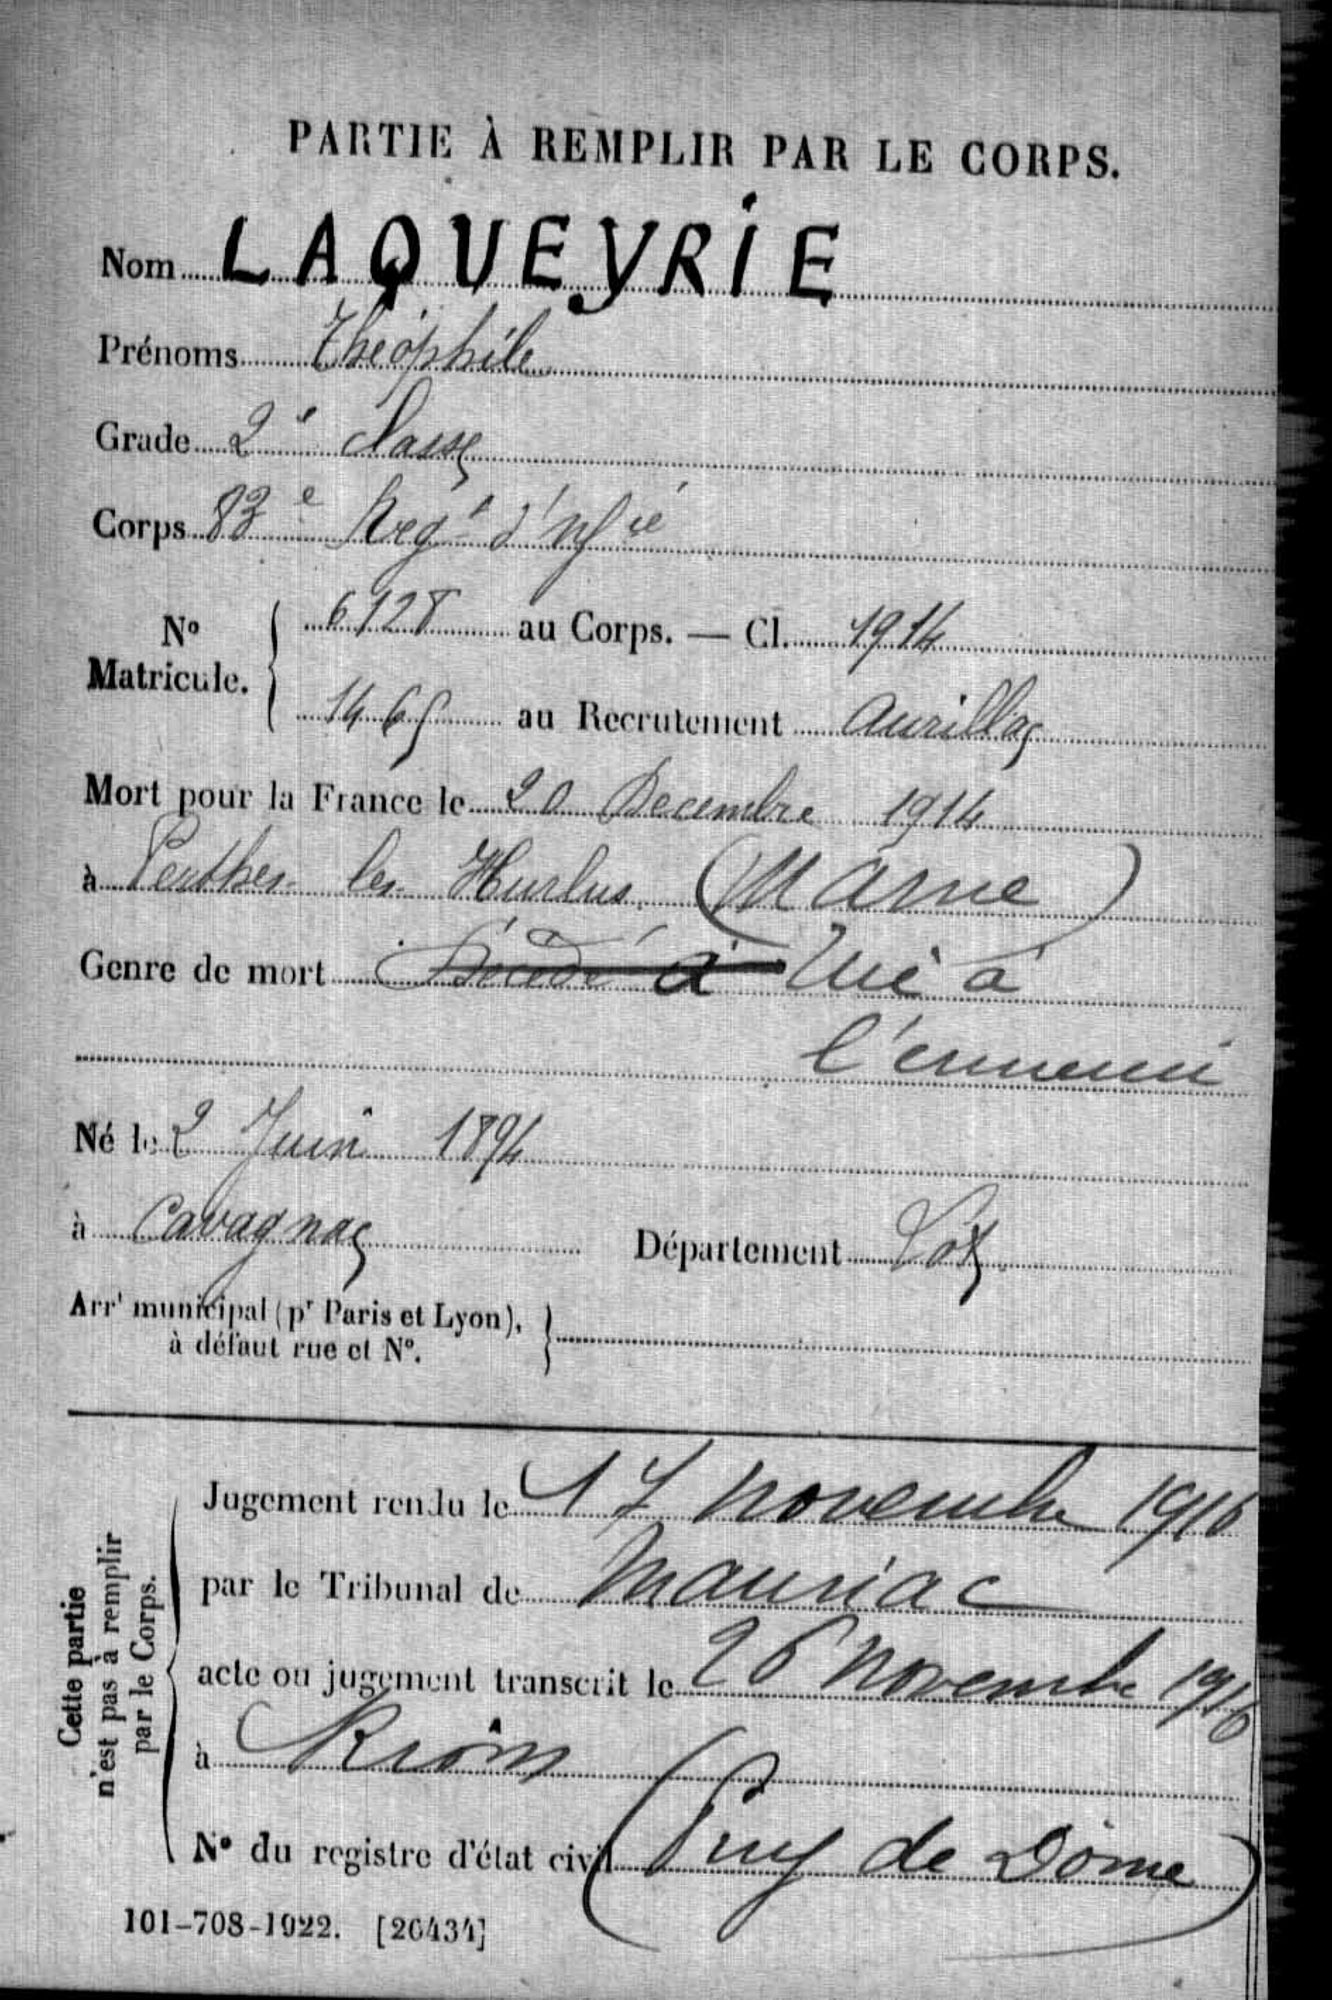 PARTIE À REMPLIR PAR LE CORPS.
Nom LAQUEYRIE
Prénoms Théophile
Grade 2e Classe
Corps 83e Regt d'Infie
No Matricule. { 6128 au Corps. — Cl. 1914
1465 au Recrutement Aurillac
Mort pour la France le 20 Decembre 1914
à Perthes les Hurlus. (Marne)
Genre de mort Décédé à Tué à
l'ennemi
Né le 2 Juin 1894
à Cavagnac Département Lot
Arrt municipal (pr Paris et Lyon),
à défaut rue et No.
Cette partie
n'est pas à remplir
par le Corps.
Jugement rendu le 17 novembre 1916
par le Tribunal de Mauriac
acte ou jugement transcrit le 26 novembre 1916
à Riom
No du registre d'état civil (Puy de Dôme)
101-708-1922. [26434]